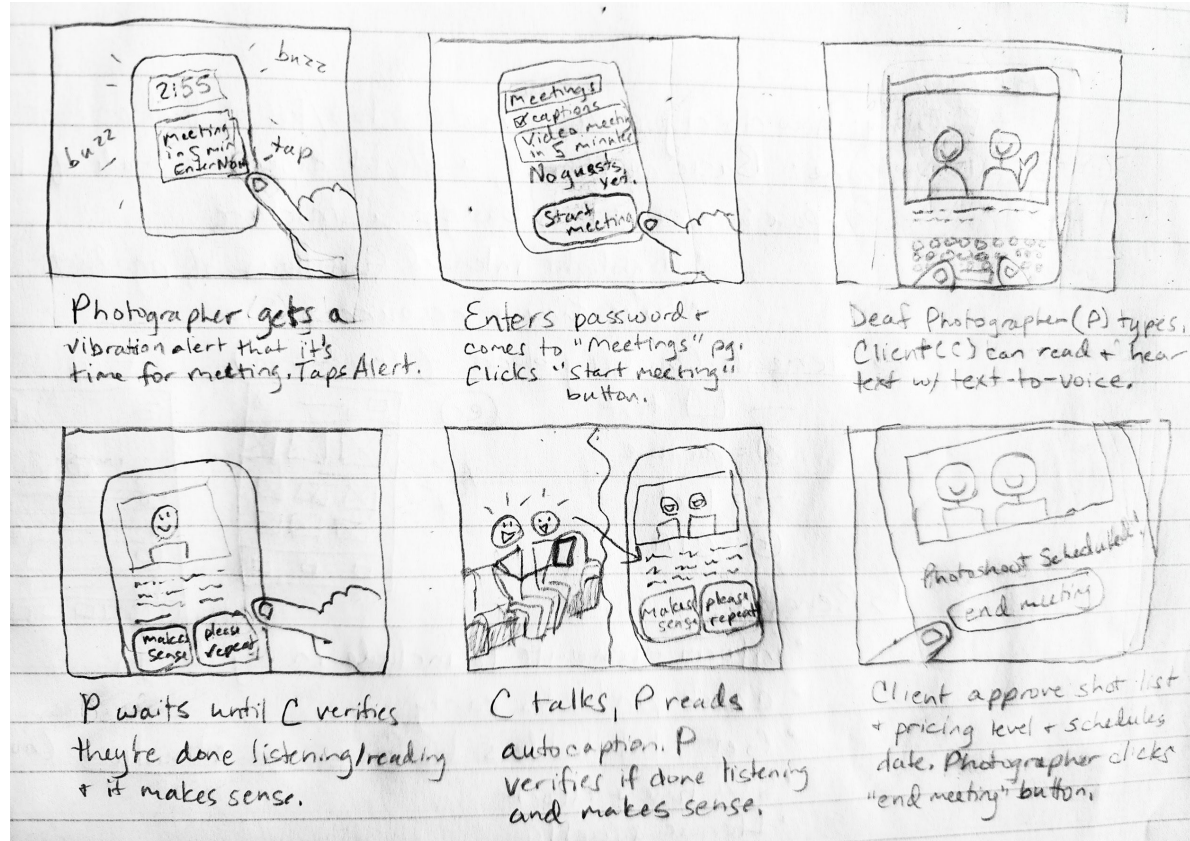 buzz
buzz
2:55
Meeting
in 5 min
Enter Now
tap
Photographer gets a
vibration alert that it's
time for meeting. Taps Alert.
Meetings
captions
Video meetin
in 5 minutes
No guests
yet.
Start
meeting
Enters password +
comes to "Meetings" pg.
Clicks "Start meeting"
button.
Deaf Photographer (P) types.
Client (C) can read + hear
text w/ text-to-voice.
makes
sense
please
repeat
P waits until C verifies
they're done listening/reading
+ it makes sense.
Makes
sense
please
repeat
C talks, P reads
autocaption. P
verifies if done listening
and makes sense.
Photoshoot Scheduled!
end meeting
Client approve shot list
+ pricing level + schedules
date. Photographer clicks
"end meeting" button.